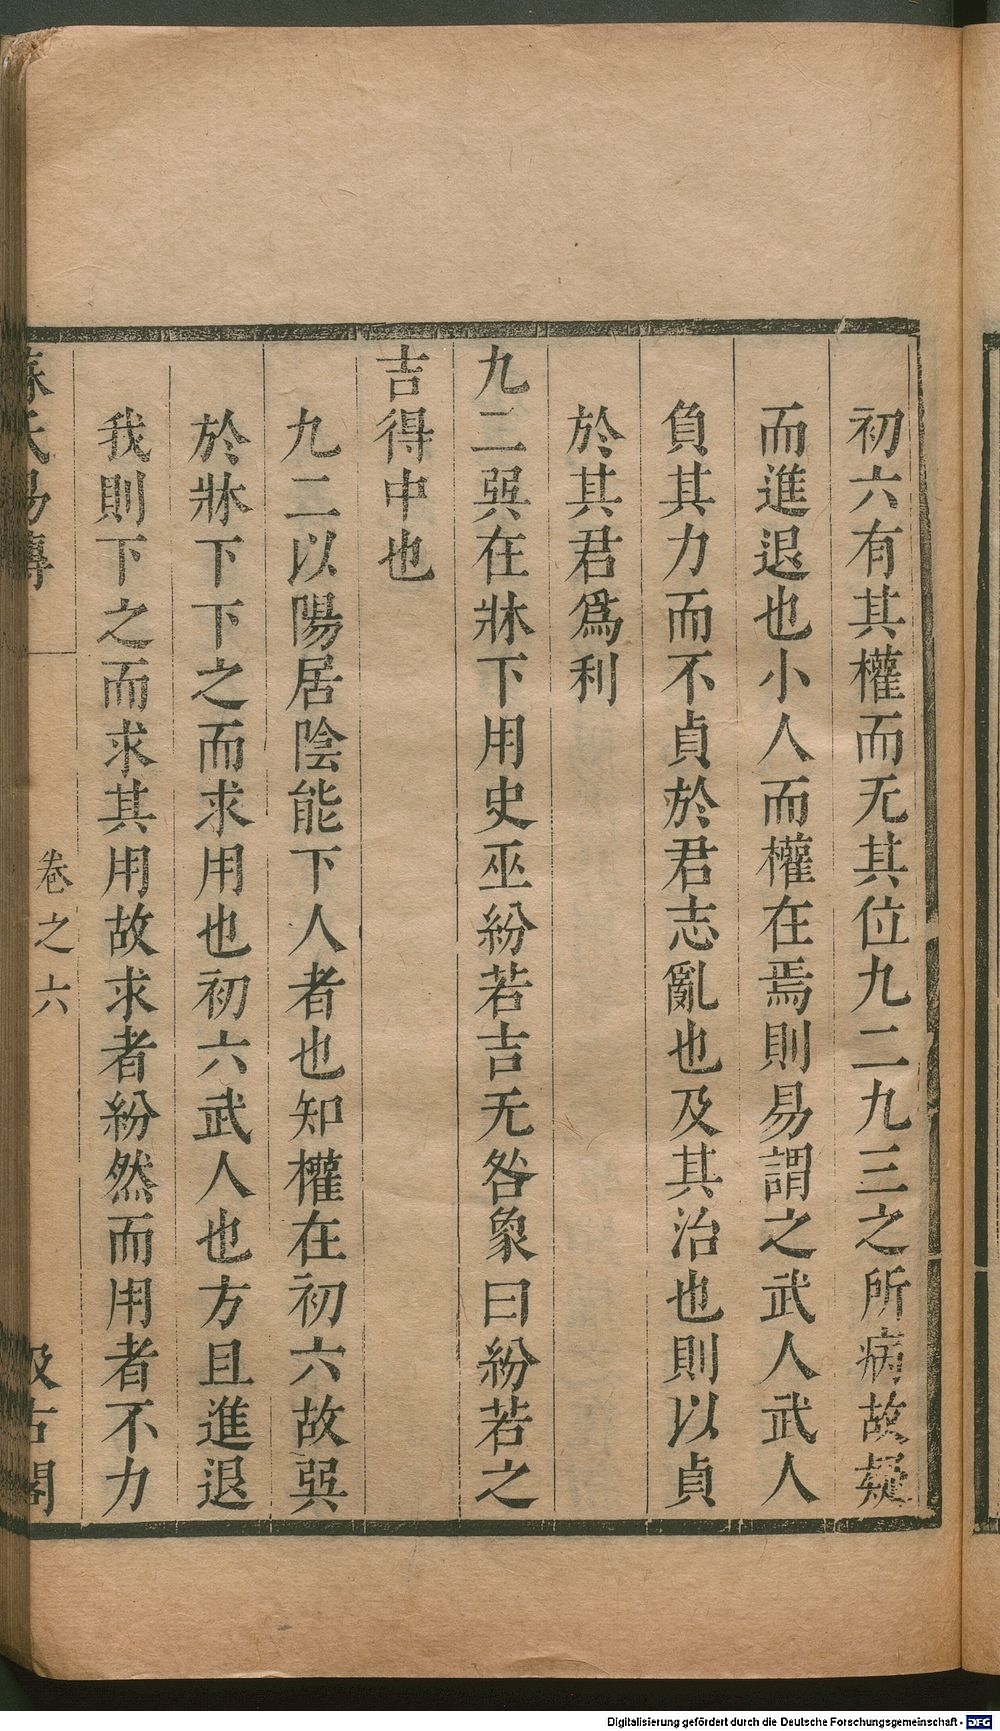 初六有其權而无其位九二九三之所病故疑
而進退也小人而權在焉則易謂之武人武人
負其力而不貞於君志亂也及其治也則以貞
於其君爲利
九二巽在牀下用史巫紛若吉无咎象曰紛若之
吉得中也
九二以陽居陰能下人者也知權在初六故巽
於牀下下之而求用也初六武人也方且進退
我則下之而求其用故求者紛然而用者不力
蘇氏易傳
卷之六
汲古閣
Digitalisierung gefördert durch die Deutsche Forschungsgemeinschaft - DFG